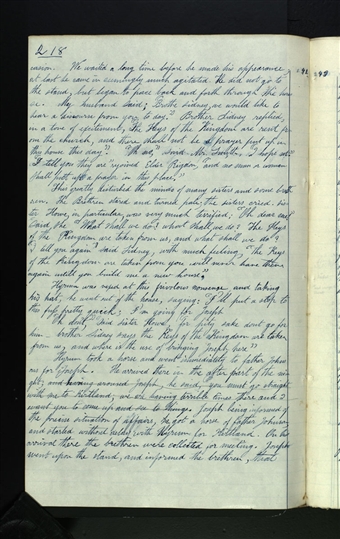 218
casion. We waited a long time before he made his appearance,
at last he came in seemingly much agitated. He did not go to
the stand, but began to pace back and forth through the hou-
se. My husband said; Brother Sidney, we would like to
hear a discourse from you to day." Brother Sidney replied,
in a tone of excitement, "The Keys of the Kingdom are rent from
the church, and there shall not be a prayer put up in
this house this day." "Oh no," said Mr. Smith, "I hope not."
"I tell you they are" rejoined Elder Rigdon, "and no man or woman
shall put up a prayer in this place."
This greatly disturbed the minds of many sisters and some breth-
ren. The Brethren stared and turned pale, the sisters cried. Sis-
ter Howe, in particular, was very much terrified; "Oh dear me!
Said she "What shall we do? what shall we do? The Keys
of the Kingdom are taken from us, and what shall we do?
"I tell you again" said Sidney, with much feeling, "the Keys
of the Kingdom are taken from you, and you will never have them
again until you build me a new house."
Hyrum was vexed at this frivolous nonsense, and taking
his hat, he went out of the house, saying: I'll put a stop to
this fuss pretty quick; I'm going for Joseph.
"Oh don't" said sister Howe, "for pity sake dont go for
him. Brother Sidney says the Keys of the Kingdom are taken
from us, and where is the use of bringing Joseph here?
Hyrum took a horse and went immediately to father Johns-
ons for Joseph. He arrived there in the after part of the ni-
ght; and having aroused Joseph, he said, you must go straight
with me to Kirtland; we are having terrible times there and I
want you to come up and see to things. Joseph being informed of
the precise situation of affairs, he got a horse of father Johnson
and started without with Hyrum for Kirtland. On his
arrival there the brethren were collected for meeting. Joseph
went upon the stand, and informed the brethren, that